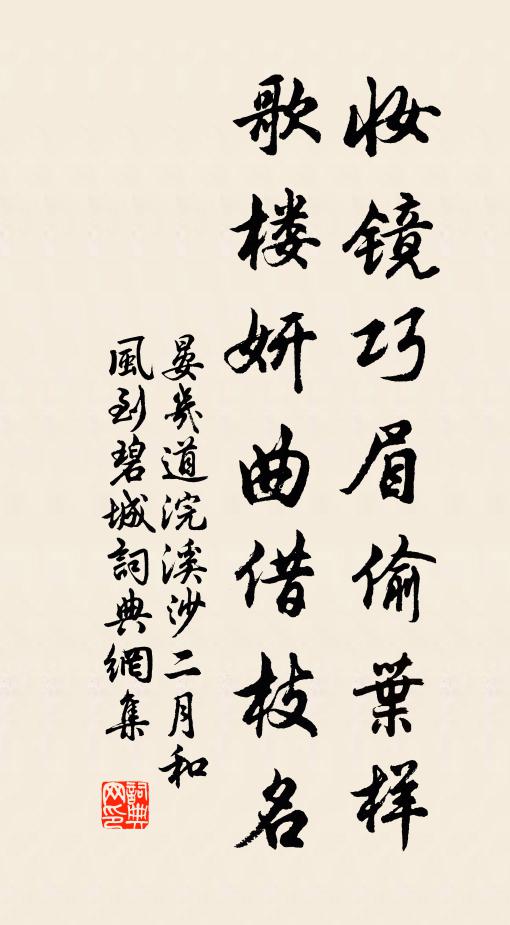 妆镜巧眉偷葉样
歌楼妍曲借枝名
晏幾道浣溪沙二月和
風到碧城詞典網集
詞典网印